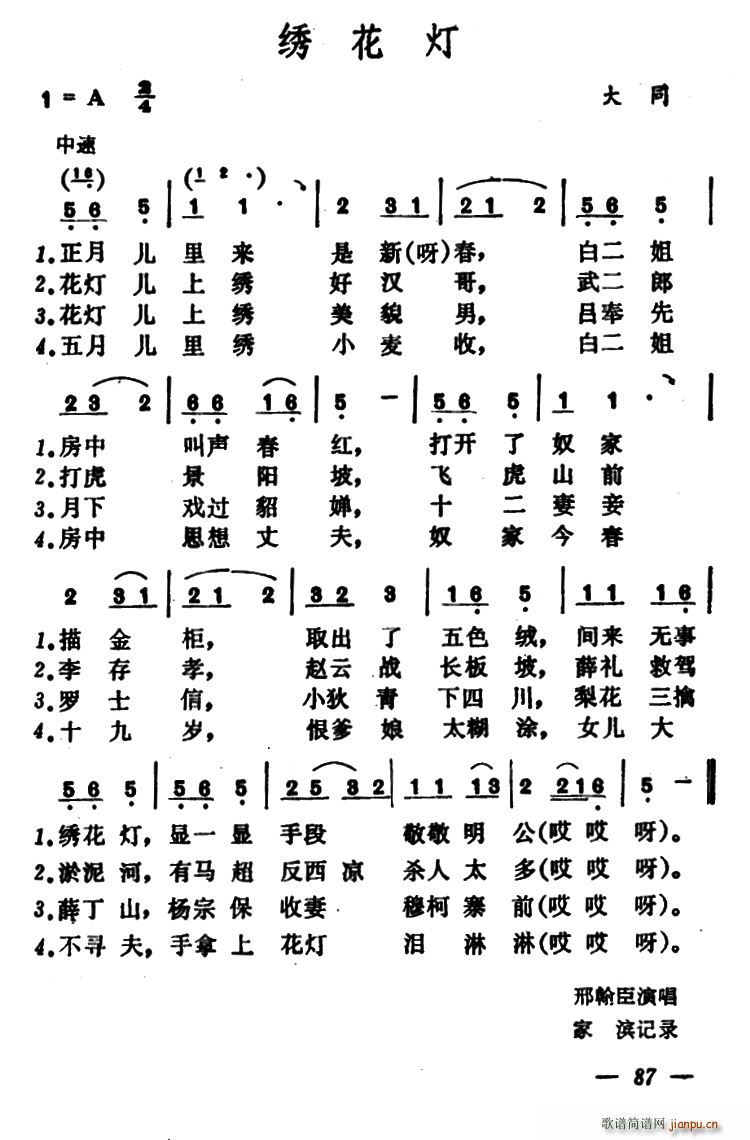 绣花灯
1=A 2/4 大同
中速
(1 6) (1 2 ·)
5 6 5 | 1 1 · | 2 3 1 | 2 1 2 | 5 6 5 |
1.正月儿里来是新(呀)春，白二姐
2.花灯儿上绣好汉哥，武二郎
3.花灯儿上绣美貌男，吕奉先
4.五月儿里绣小麦收，白二姐
2 3 2 | 6 6 1 6 | 5 — | 5 6 5 | 1 1 · |
1.房中叫声春红，打开了奴家
2.打虎景阳坡，飞虎山前
3.月下戏过貂婵，十二妻妾
4.房中思想丈夫，奴家今春
2 3 1 | 2 1 2 | 3 3 2 3 | 1 6 5 | 1 1 1 6 |
1.描金柜，取出了五色绒，间来无事
2.李存孝，赵云战长板坡，薛礼救驾
3.罗士信，小狄青下四川，梨花三擒
4.十九岁，恨爹娘太糊涂，女儿大
5 6 5 | 5 6 5 | 2 5 3 2 | 1 1 1 3 | 2 2 1 6 | 5 — ‖
1.绣花灯，显一显手段敬敬明公(哎哎呀)。
2.淤泥河，有马超反西凉杀人太多(哎哎呀)。
3.薛丁山，杨宗保收妻穆柯寨前(哎哎呀)。
4.不寻夫，手拿上花灯泪淋淋(哎哎呀)。
邢翰臣演唱
家滨记录
— 87 —
歌谱简谱网
jianpu.cn